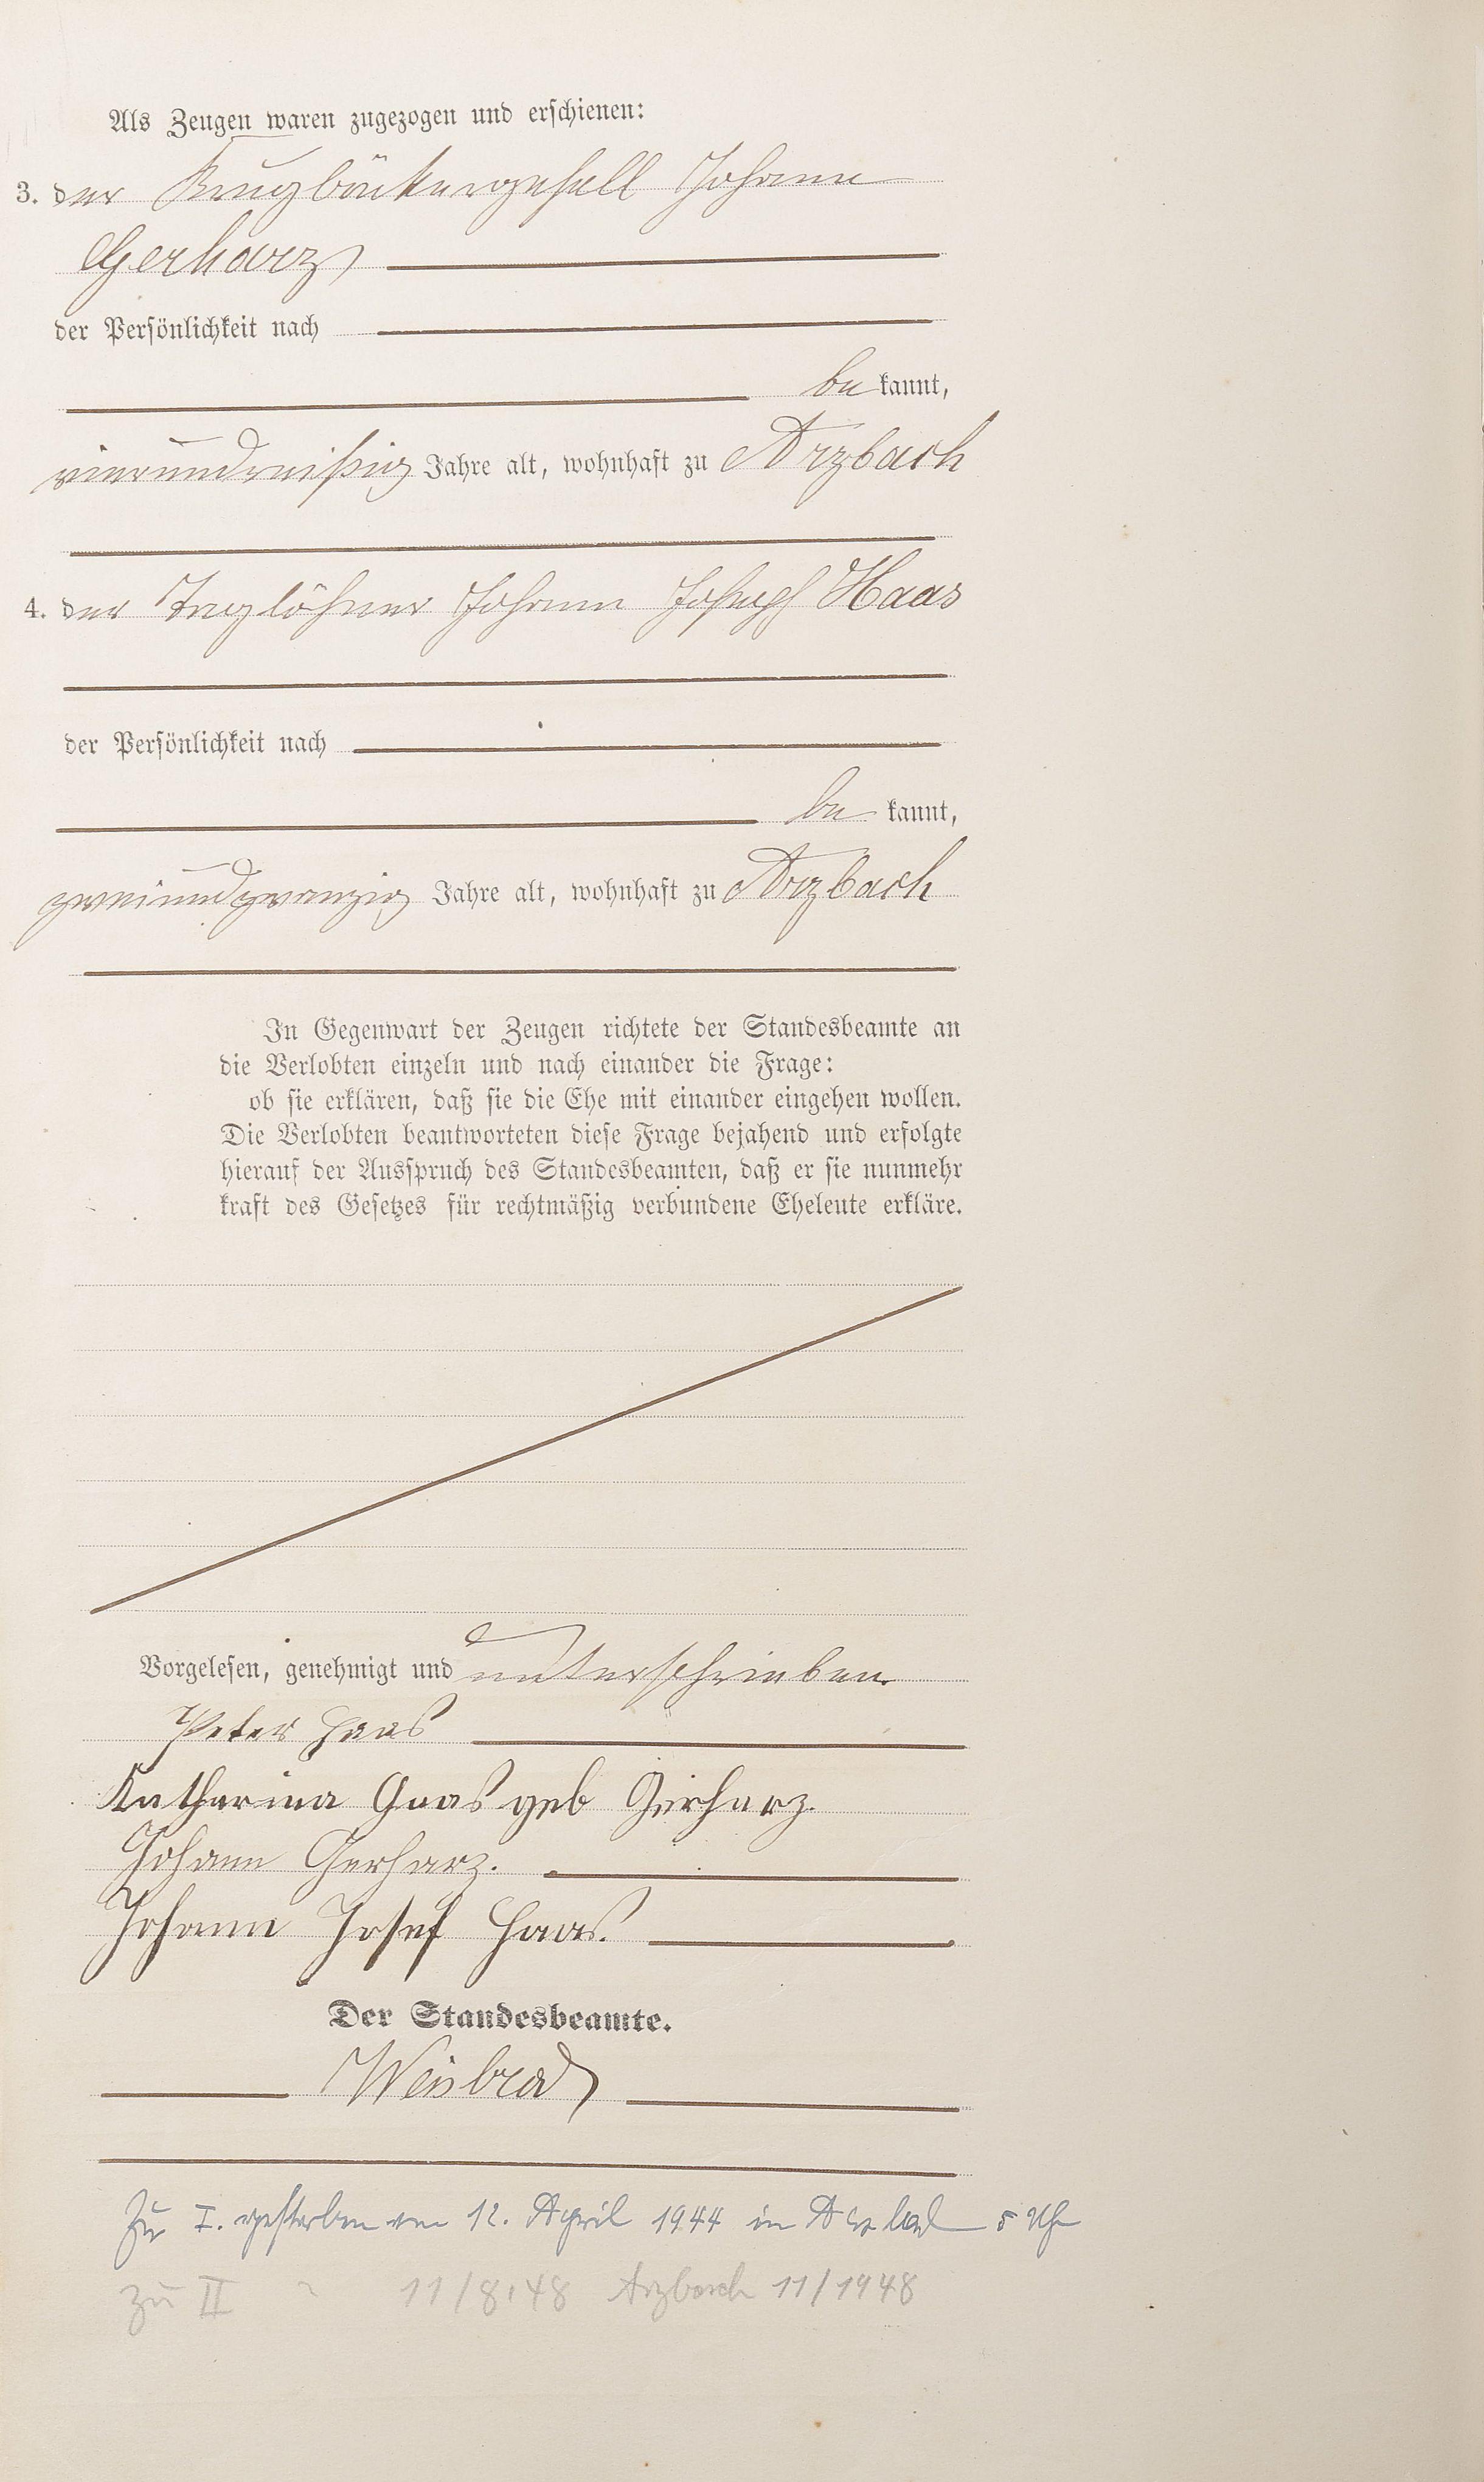 Als Zeugen waren zugezogen und erschienen:
3. der Krugbäckergesell Johann
Gerharz
der Persönlichkeit nach
be kannt,
vierunddreißig Jahre alt, wohnhaft zu Arzbach
4. der Taglöhner Johann Joseph Haas
der Persönlichkeit nach
be kannt,
zweiundzwanzig Jahre alt, wohnhaft zu Arzbach
In Gegenwart der Zeugen richtete der Standesbeamte an
die Verlobten einzeln und nach einander die Frage:
ob sie erklären, daß sie die Ehe mit einander eingehen wollen.
Die Verlobten beantworteten diese Frage bejahend und erfolgte
hierauf der Ausspruch des Standesbeamten, daß er sie nunmehr
kraft des Gesetzes für rechtmäßig verbundene Eheleute erkläre.
Vorgelesen, genehmigt und unterschrieben
Peter Haas
Katharina Haas geb Gerharz.
Johann Gerharz.
Johann Josef Haas.
Der Standesbeamte.
Weisbrod
Zu I. gestorben am 12. April 1944 in Arzbach 5 Uhr
Zu II 11/8.48 Arzbach 11/1948